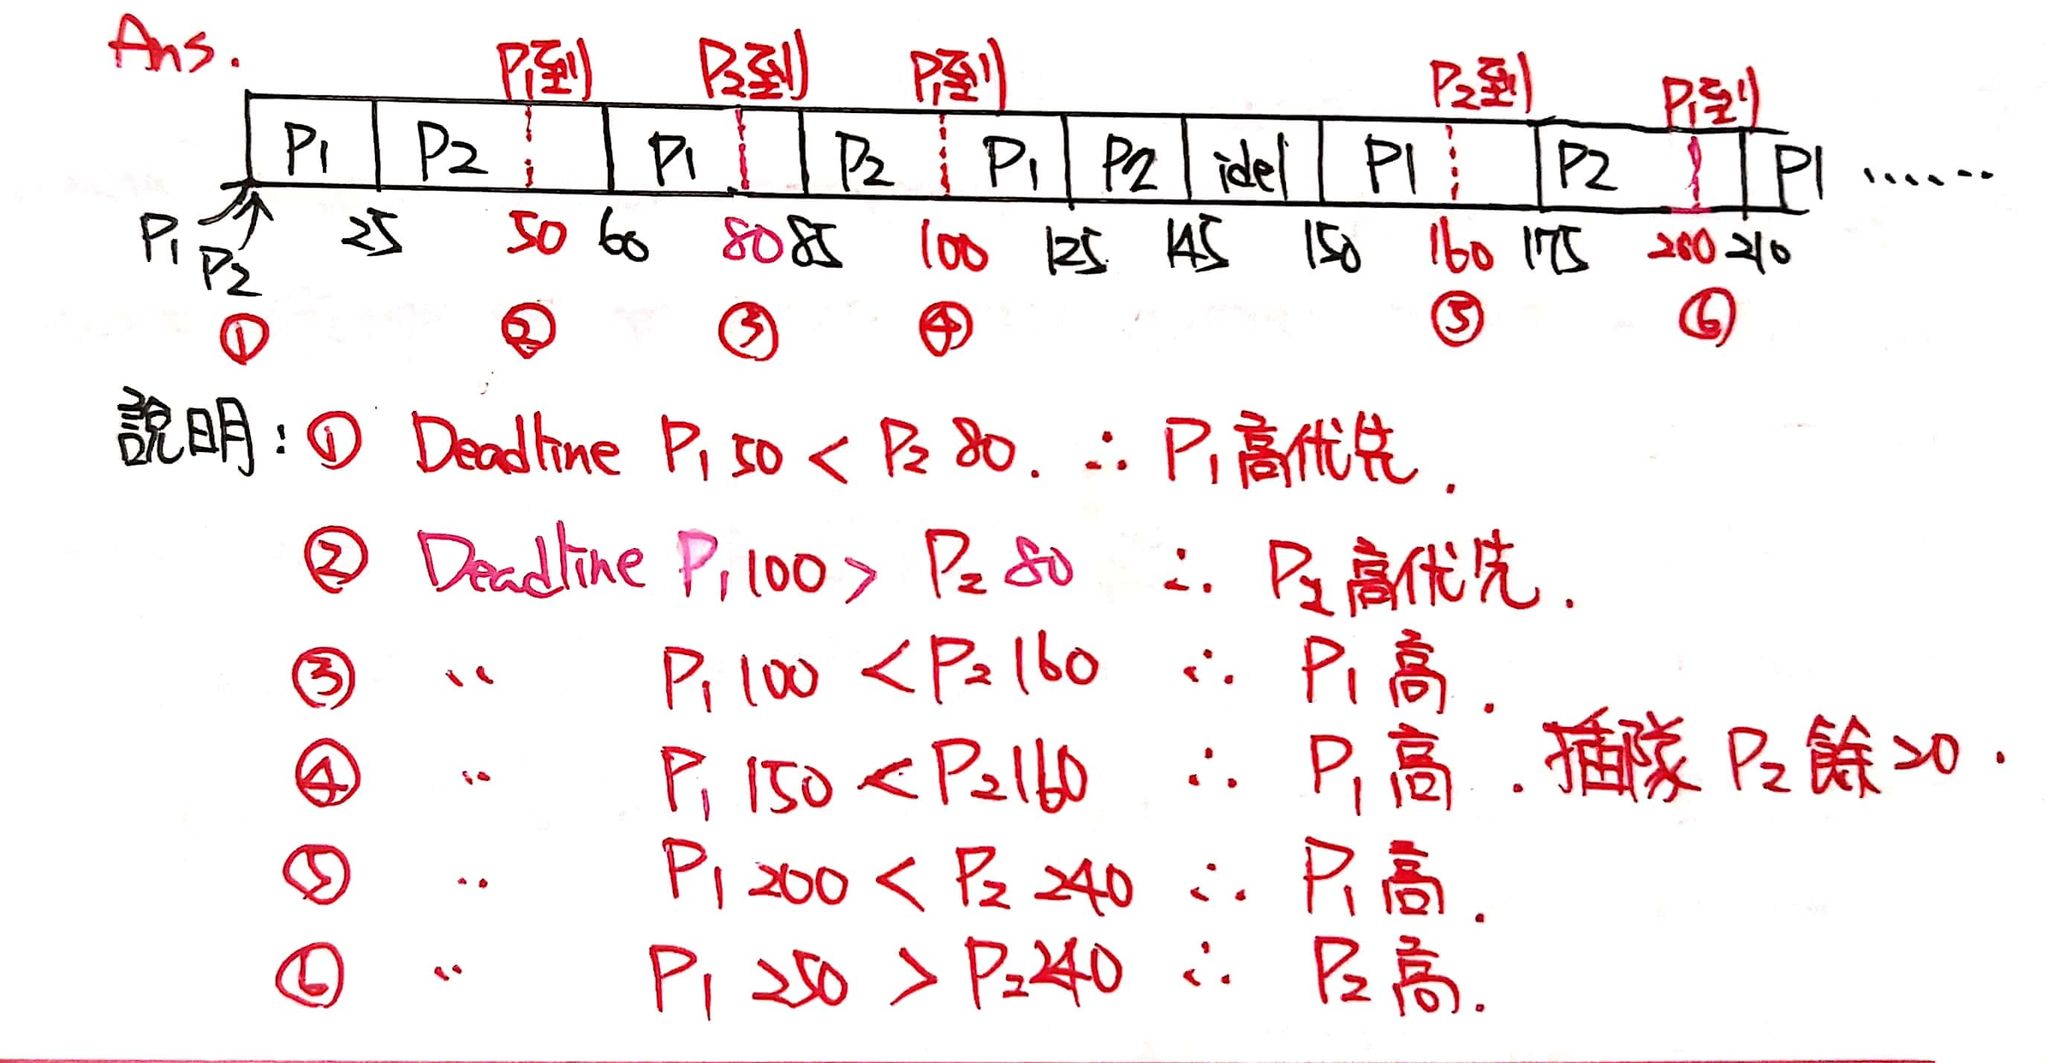 Ans.
P1到 P2到 P1到 P2到 P1到
P1 P2 P1 P2 P1 P2 idel P1 P2 P1 ......
P1 P2 25 50 60 80 85 100 125 145 150 160 175 200 210
① ② ③ ④ ⑤ ⑥
說明: ① Deadline P1 50 < P2 80. ∴ P1 高优先.
② Deadline P1 100 > P2 80 ∴ P2 高优先.
③ 〃 P1 100 < P2 160 ∴ P1 高.
④ 〃 P1 150 < P2 160 ∴ P1 高. 插隊 P2 餘 20.
⑤ 〃 P1 200 < P2 240 ∴ P1 高.
⑥ 〃 P1 250 > P2 240 ∴ P2 高.